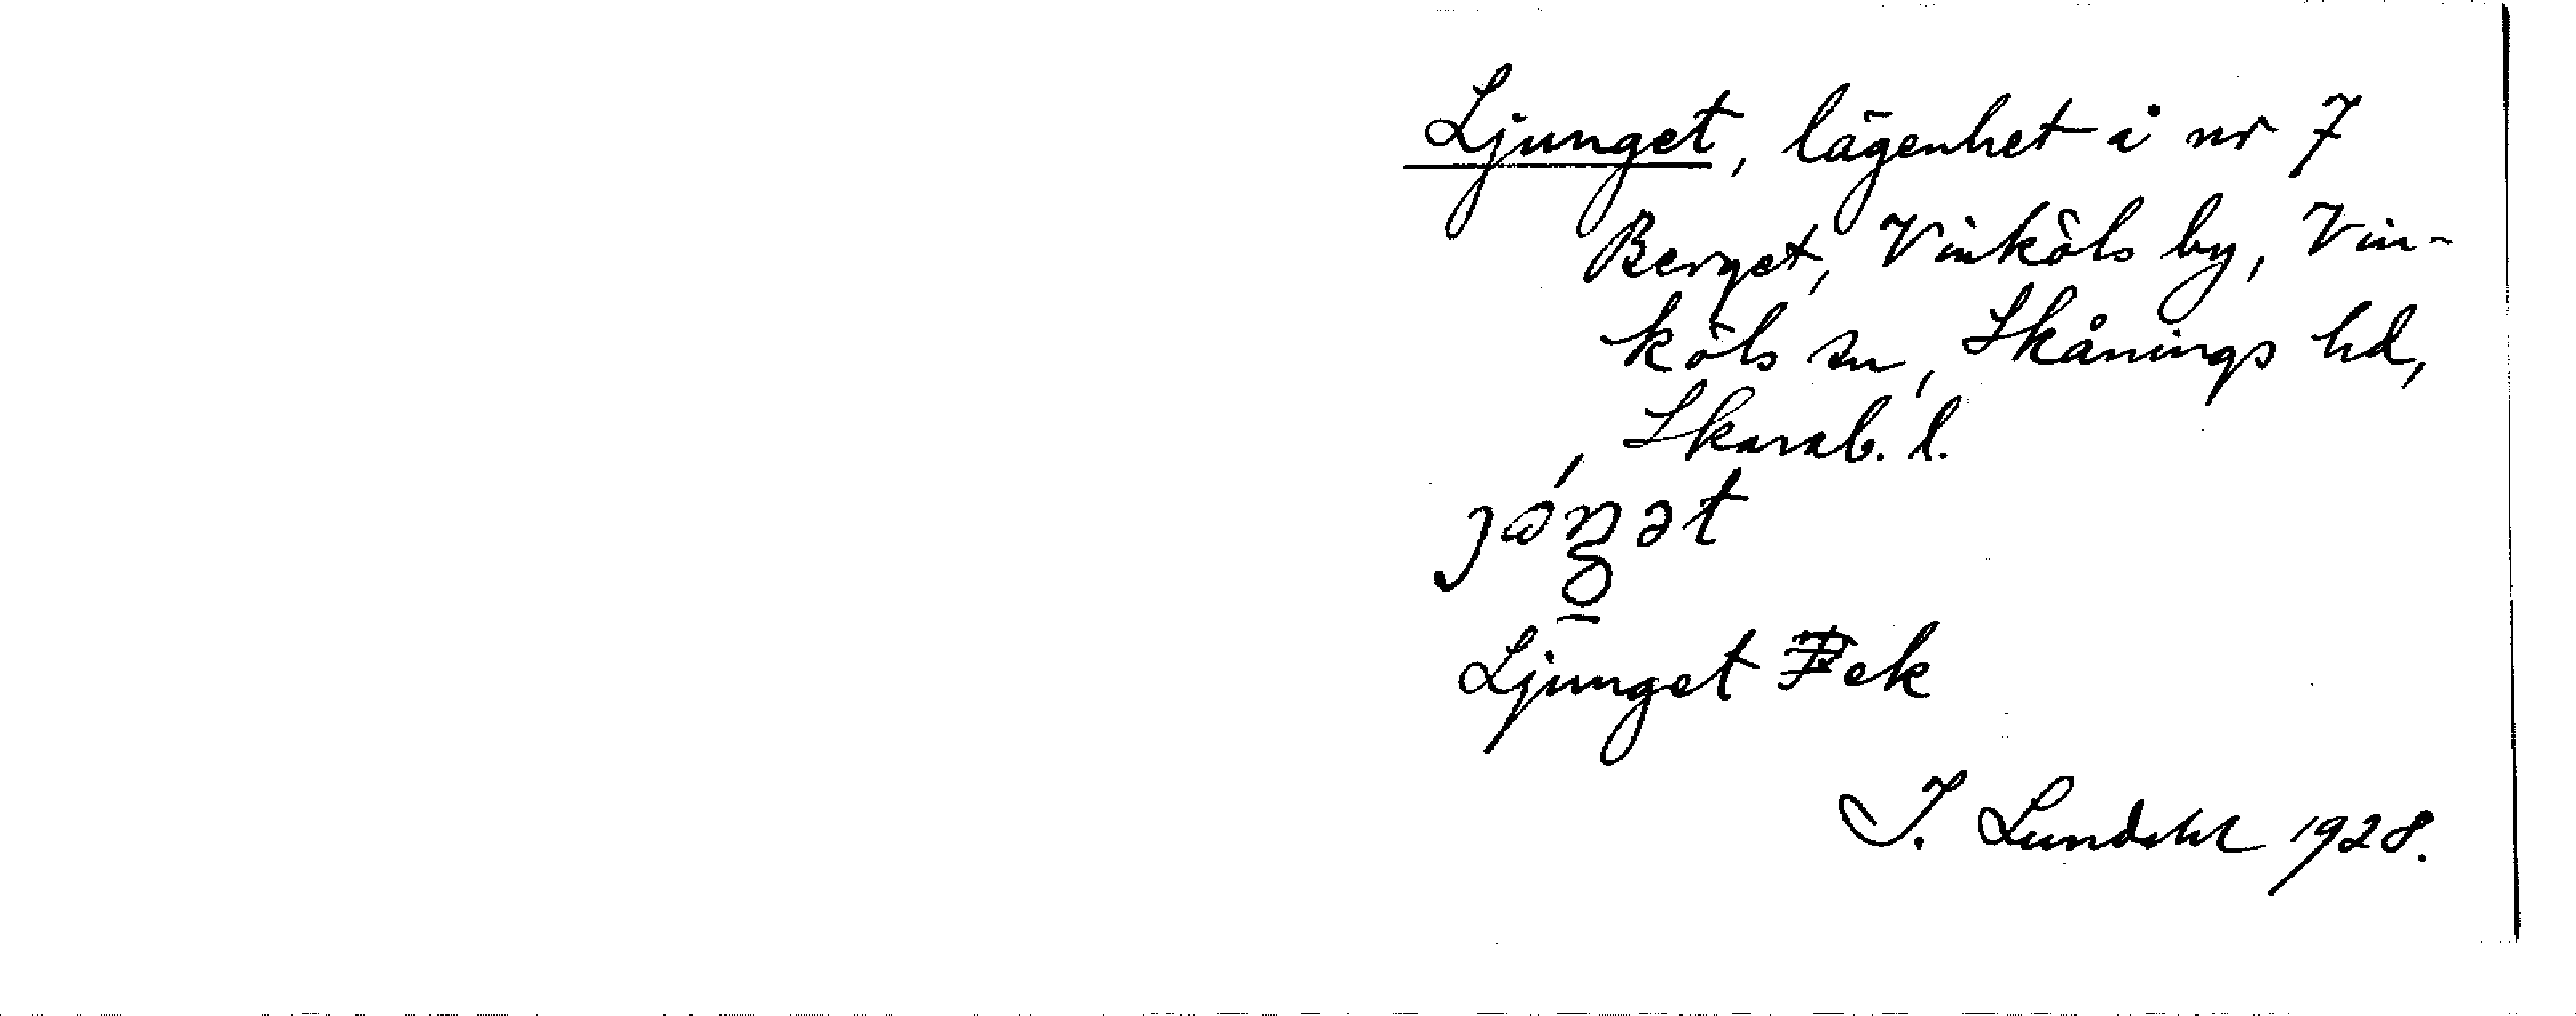 Ljunget, lägenhet å nr 7
Berget, Vinköls by, Vin-
köls sn, Skånings hd,
Skarab. l.
Ljunget ek
I. Lundahl 1928.